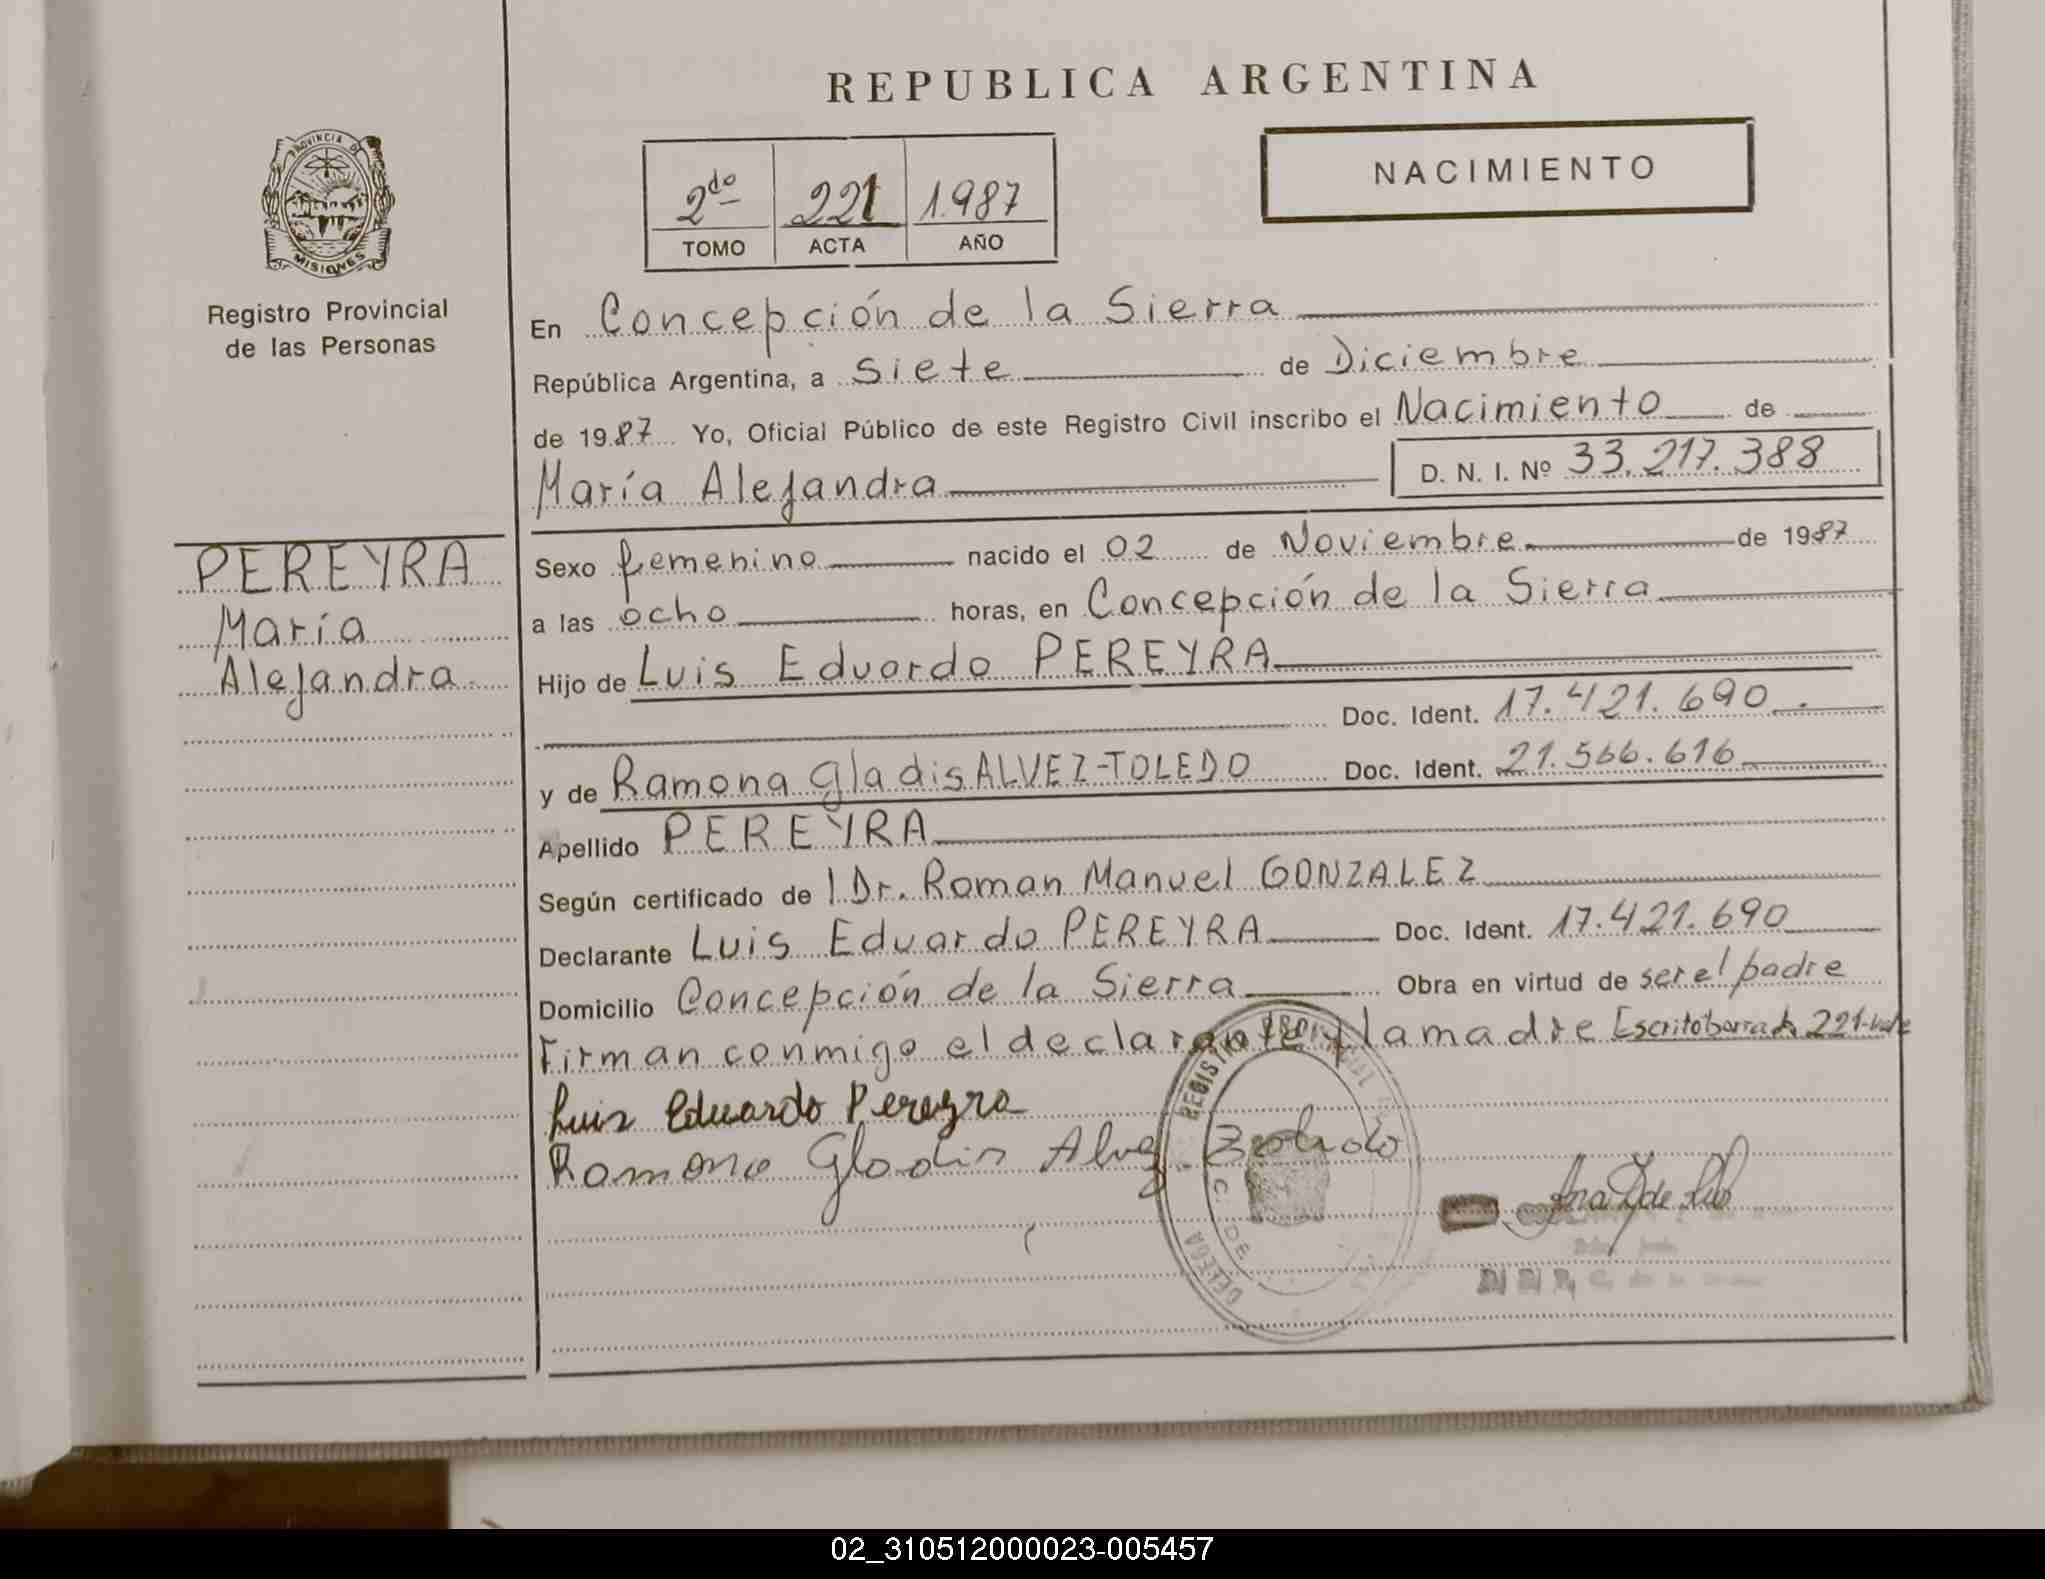 REPUBLICA ARGENTINA
PROVINCIA DE
MISIONES
Registro Provincial
de las Personas
2do 221 1.987
TOMO ACTA AÑO
NACIMIENTO
En Concepción de la Sierra
República Argentina, a siete de Diciembre
de 1987 Yo, Oficial Público de este Registro Civil inscribo el Nacimiento de
María Alejandra D. N. I. Nº 33.217.388
PEREYRA
María
Alejandra
Sexo femenino nacido el 02 de Noviembre de 1987
a las ocho horas, en Concepción de la Sierra
Hijo de Luis Eduardo PEREYRA
Doc. Ident. 17.421.690
y de Ramona Gladis ALVEZ-TOLEDO Doc. Ident. 21.566.616
Apellido PEREYRA
Según certificado de l Dr. Roman Manuel GONZALEZ
Declarante Luis Eduardo PEREYRA Doc. Ident. 17.421.690
Domicilio Concepción de la Sierra Obra en virtud de ser el padre
Firman conmigo el declarante y la madre Escrito borrado 221-vale
Luis Eduardo Pereyra
Ramona Gladis Alvez
REGISTRO
DELEGA
C. DE
02_310512000023-005457